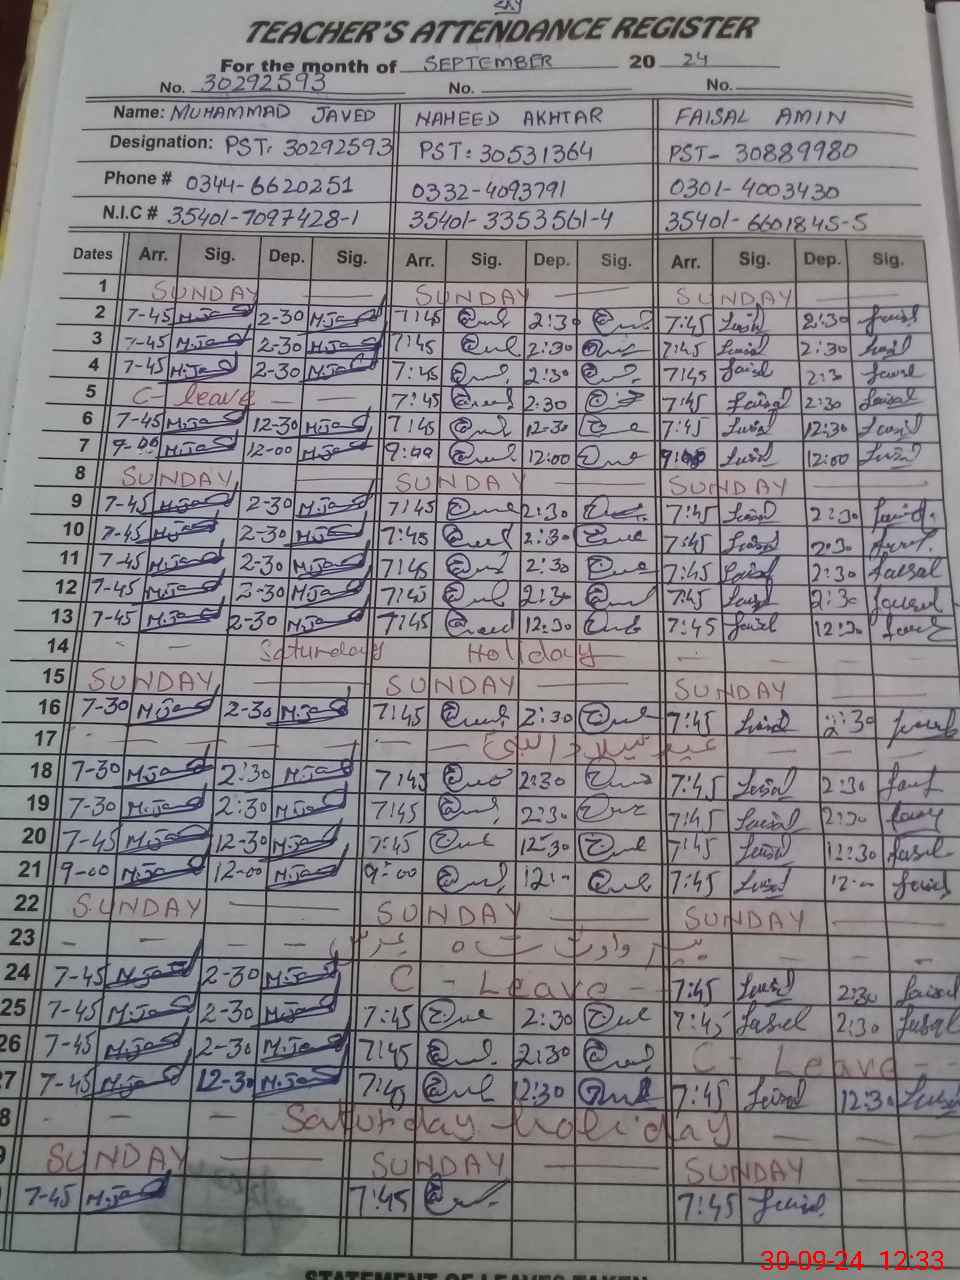 TEACHER'S ATTENDANCE REGISTER
For the month of SEPTEMBER 20 24
No. 30292593 No. No.
Name: MUHAMMAD JAVED NAHEED AKHTAR FAISAL AMIN
Designation: PST: 30292593 PST: 30531364 PST- 30889980
Phone # 0344-6620251 0332-4093791 0301-4003430
N.I.C # 35401-7097428-1 35401-3353561-4 35401-6601845-5
Dates Arr. Sig. Dep. Sig. Arr. Sig. Dep. Sig. Arr. Sig. Dep. Sig.
1 SUNDAY SUNDAY SUNDAY
2 7-45 M.Jad 2-30 M.Jad 7:45 2:30 7:45 Faisal 2:30 Faisal
3 7-45 M.Jad 2-30 M.Jad 7:45 2:30 7:45 Faisal 2:30 Faisal
4 7-45 M.Jad 2-30 M.Jad 7:45 2:30 7:45 Faisal 2:30 Faisal
5 C- leave 7:45 2:30 7:45 Faisal 2:30 Faisal
6 7-45 M.Jad 12-30 M.Jad 7:45 12-30 7:45 Faisal 12:30 Faisal
7 9-00 M.Jad 12-00 M.Jad 9:00 12:00 9:00 Faisal 12:00 Faisal
8 SUNDAY SUNDAY SUNDAY
9 7-45 M.Jad 2-30 M.Jad 7:45 2:30 7:45 Faisal 2:30 Faisal
10 7-45 M.Jad 2-30 M.Jad 7:45 2:30 7:45 Faisal 2:30 Faisal
11 7-45 M.Jad 2-30 M.Jad 7:45 2:30 7:45 Faisal 2:30 Faisal
12 7-45 M.Jad 2-30 M.Jad 7:45 2:30 7:45 Faisal 2:30 Faisal
13 7-45 M.Jad 2-30 M.Jad 7:45 12:30 7:45 Faisal 12:30 Faisal
14 Saturday Holiday
15 SUNDAY SUNDAY SUNDAY
16 7-30 M.Jad 2-30 M.Jad 7:45 2:30 7:45 Faisal 2:30 Faisal
17 عید میلاد النبیؐ
18 7-30 M.Jad 2:30 M.Jad 7:45 2:30 7:45 Faisal 2:30 Faisal
19 7-30 M.Jad 2:30 M.Jad 7:45 2:30 7:45 Faisal 2:30 Faisal
20 7-45 M.Jad 12-30 M.Jad 7:45 12:30 7:45 Faisal 12:30 Faisal
21 9-00 M.Jad 12-00 M.Jad 9:00 12:- 7:45 Faisal 12:- Faisal
22 SUNDAY SUNDAY SUNDAY
23 وارث شاہ عرس
24 7-45 M.Jad 2-30 M.Jad C - Leave 7:45 Faisal 2:30 Faisal
25 7-45 M.Jad 2-30 M.Jad 7:45 2:30 7:45 Faisal 2:30 Faisal
26 7-45 M.Jad 2-30 M.Jad 7:45 2:30 C - Leave
7 7-45 M.Jad 12-30 M.Jad 7:45 12:30 7:45 Faisal 12:30 Faisal
8 Saturday Holiday
9 SUNDAY SUNDAY SUNDAY
7-45 M.Jad 7:45 7:45 Faisal
30-09-24 12:33
STATEMENT OF LEAVES TAKEN